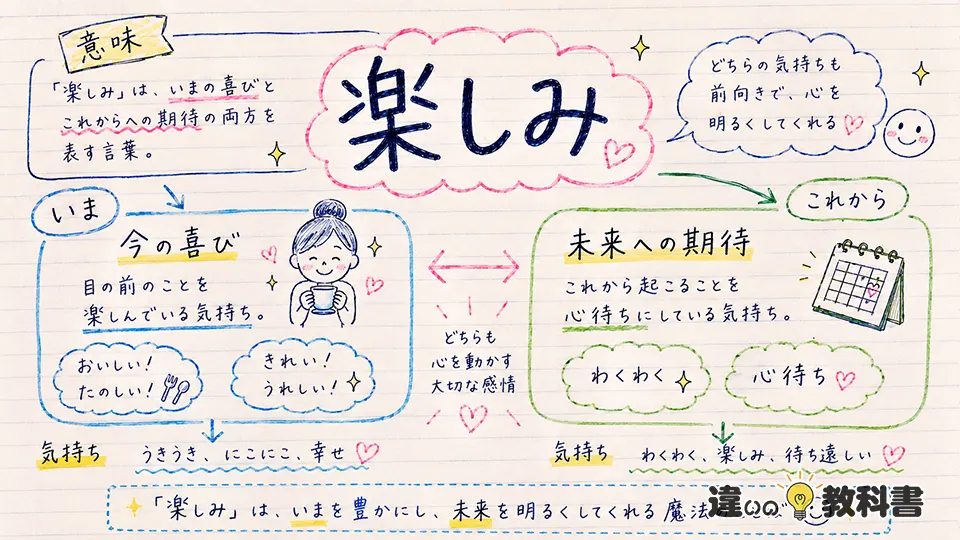 意味
「楽しみ」は、いまの喜びと
これからへの期待の両方を
表す言葉。
楽しみ
どちらの気持ちも
前向きで、心を
明るくしてくれる
いま
今の喜び
目の前のことを
楽しんでいる気持ち。
おいしい!
たのしい!
きれい!
うれしい!
どちらも
心を動かす
大切な感情
これから
未来への期待
これから起こることを
心待ちにしている気持ち。
わくわく
心待ち
気持ち
うきうき、にこにこ、幸せ
気持ち
わくわく、楽しみ、待ち遠しい
「楽しみ」は、いまを豊かにし、未来を明るくしてくれる魔法
違いの教科書